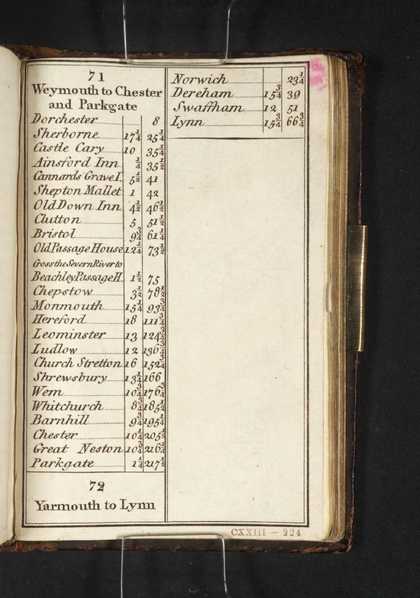 71
Weymouth to Chester
and Parkgate
Dorchester 8
Sherborne 17¼ 25¼
Castle Cary 10 35¼
Ainsford Inn ¼ 35½
Cannards Grave I. 5½ 41
Shepton Mallet 1 42
Old Down Inn 4½ 46½
Clutton 5 51½
Bristol 9¾ 61¼
Old Passage House 12¼ 73½
Cross the Severn River to
Beachley Passage H. 1½ 75
Chepstow 3½ 78½
Monmouth 15¼ 93¾
Hereford 18 111¾
Leominster 13 124¾
Ludlow 12 136¾
Church Stretton 16 152¾
Shrewsbury 13¼ 166
Wem 10¾ 176¾
Whitchurch 8½ 185¼
Barnhill 9¾ 195¼
Chester 10¼ 205½
Great Neston 10¾ 216¼
Parkgate 1¼ 217½
72
Yarmouth to Lynn
Norwich 23¼
Dereham 15¾ 39
Swaffham 12 51
Lynn 15¾ 66¾
CXXIII - 224